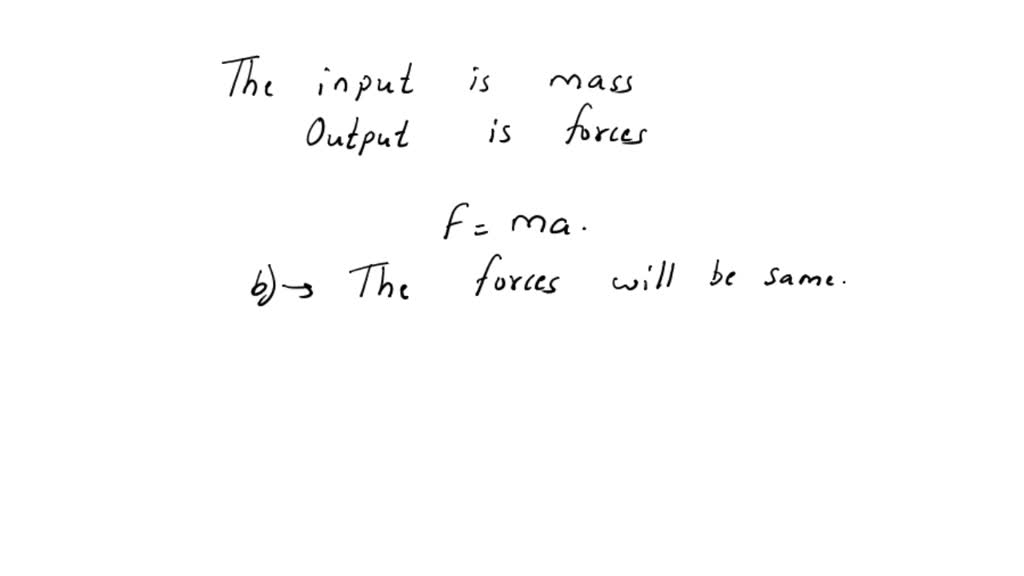 The input is mass
Output is forces
F = ma.
b)→ The forces will be same.